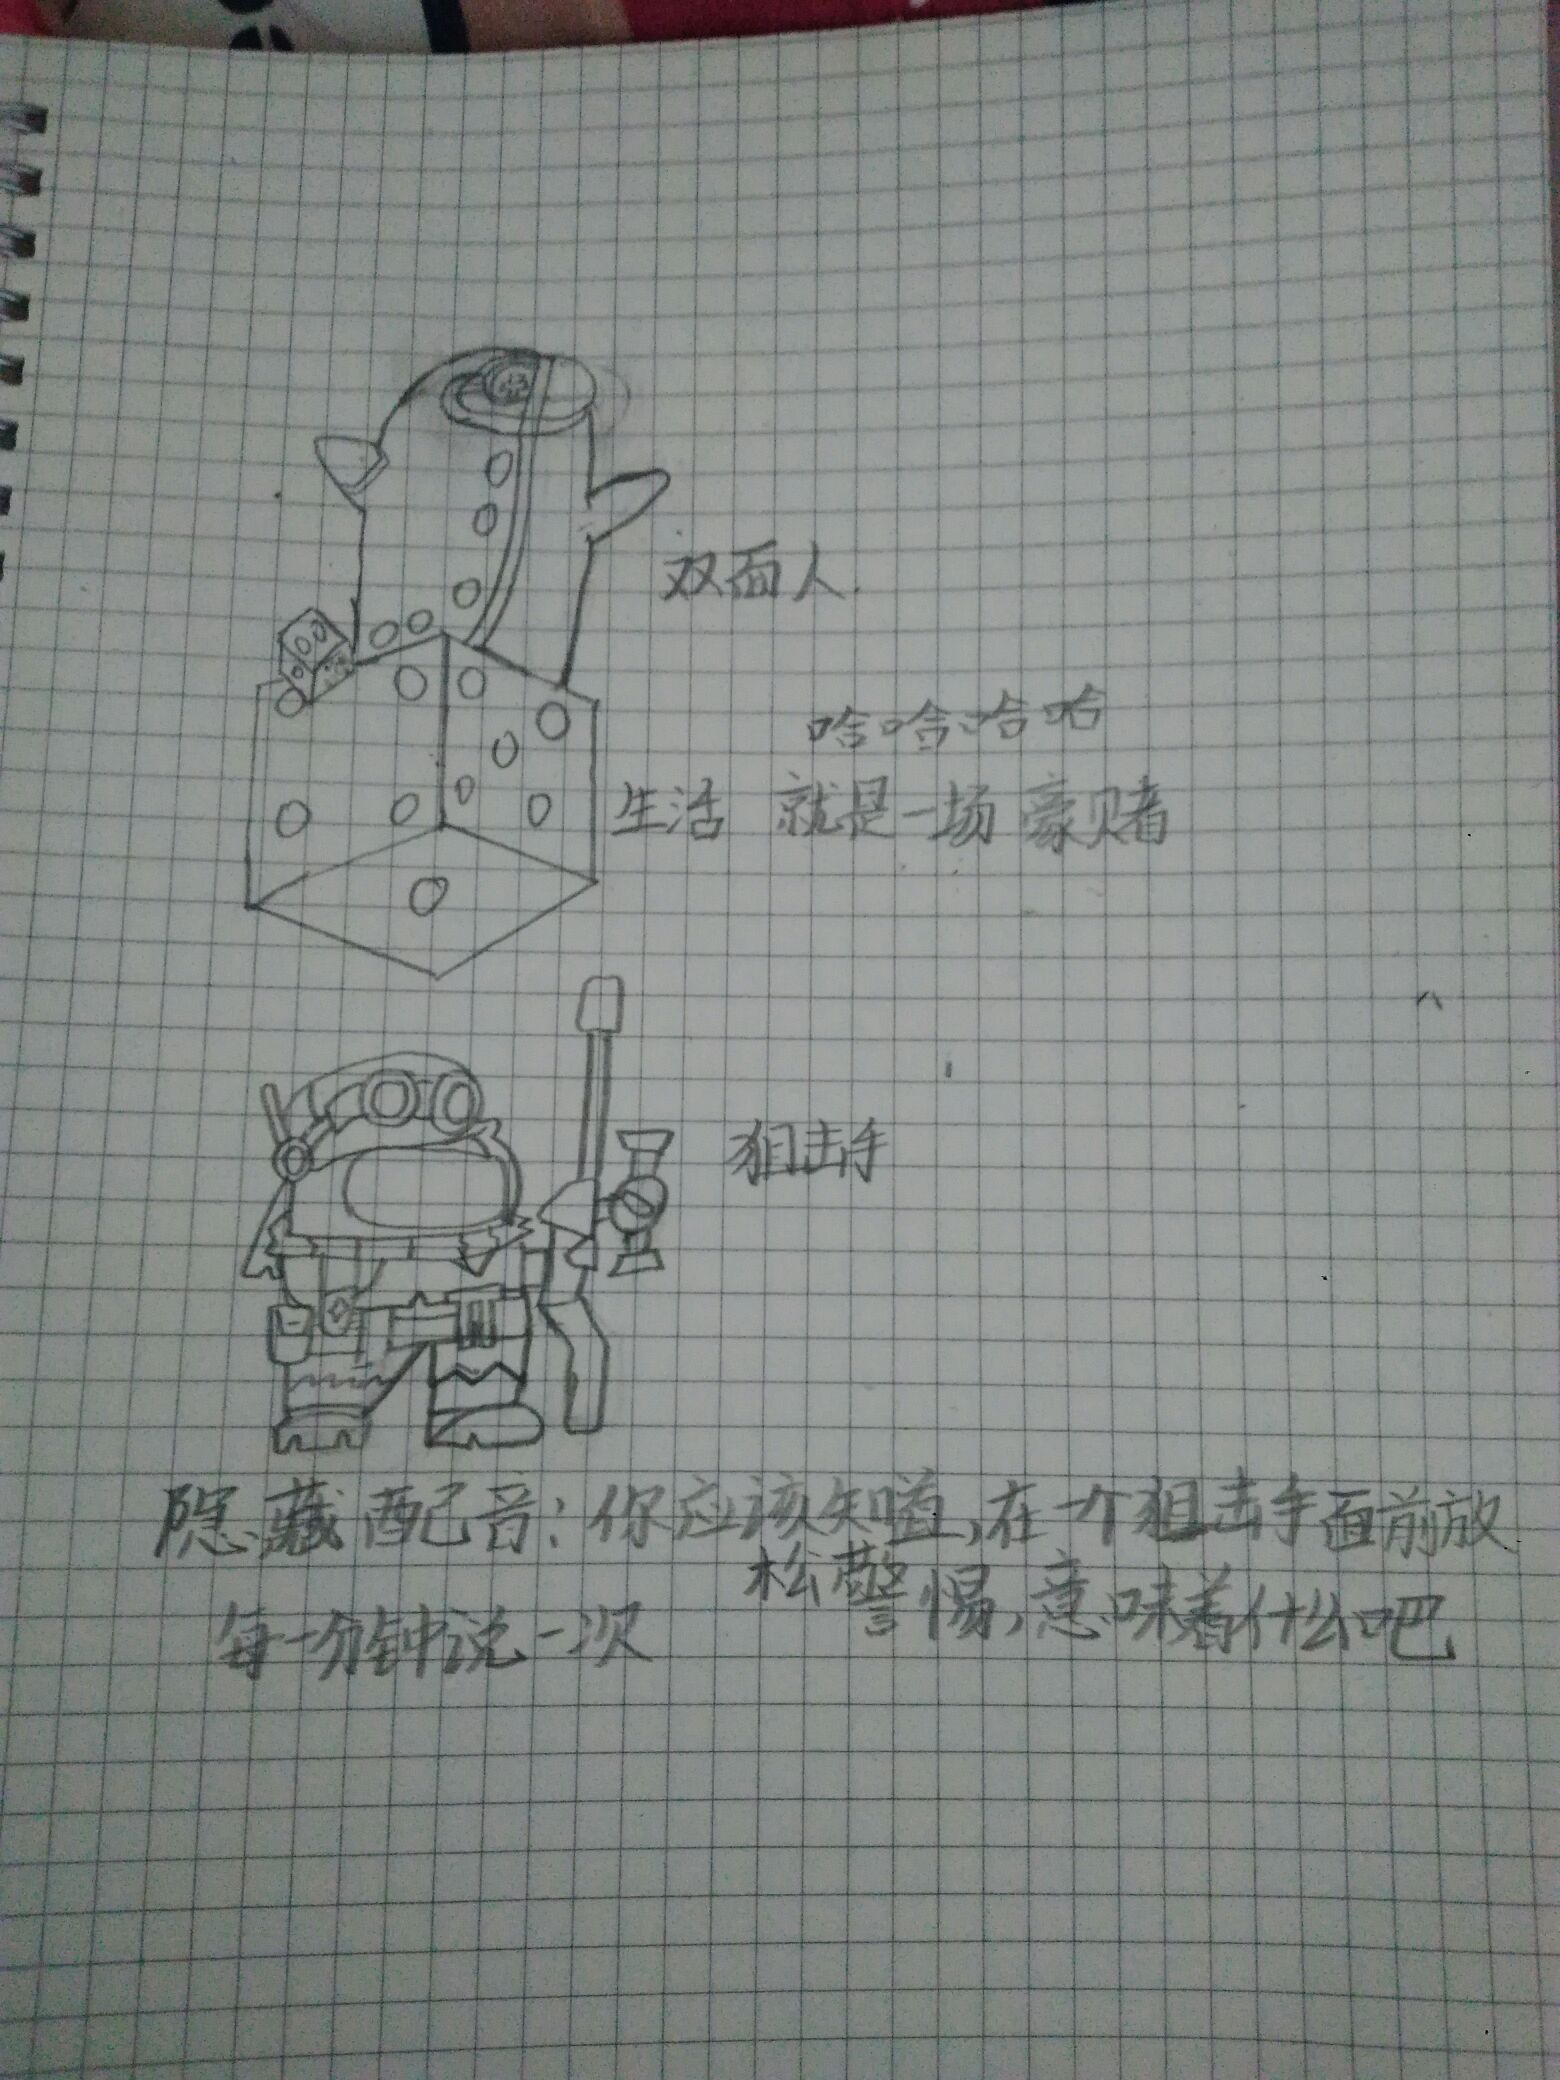 双面人
哈哈哈哈
生活 就是一场豪赌
狙击手
隐藏配音:你应该知道,在一个狙击手面前放
松警惕,意味着什么吧
每一分钟说一次